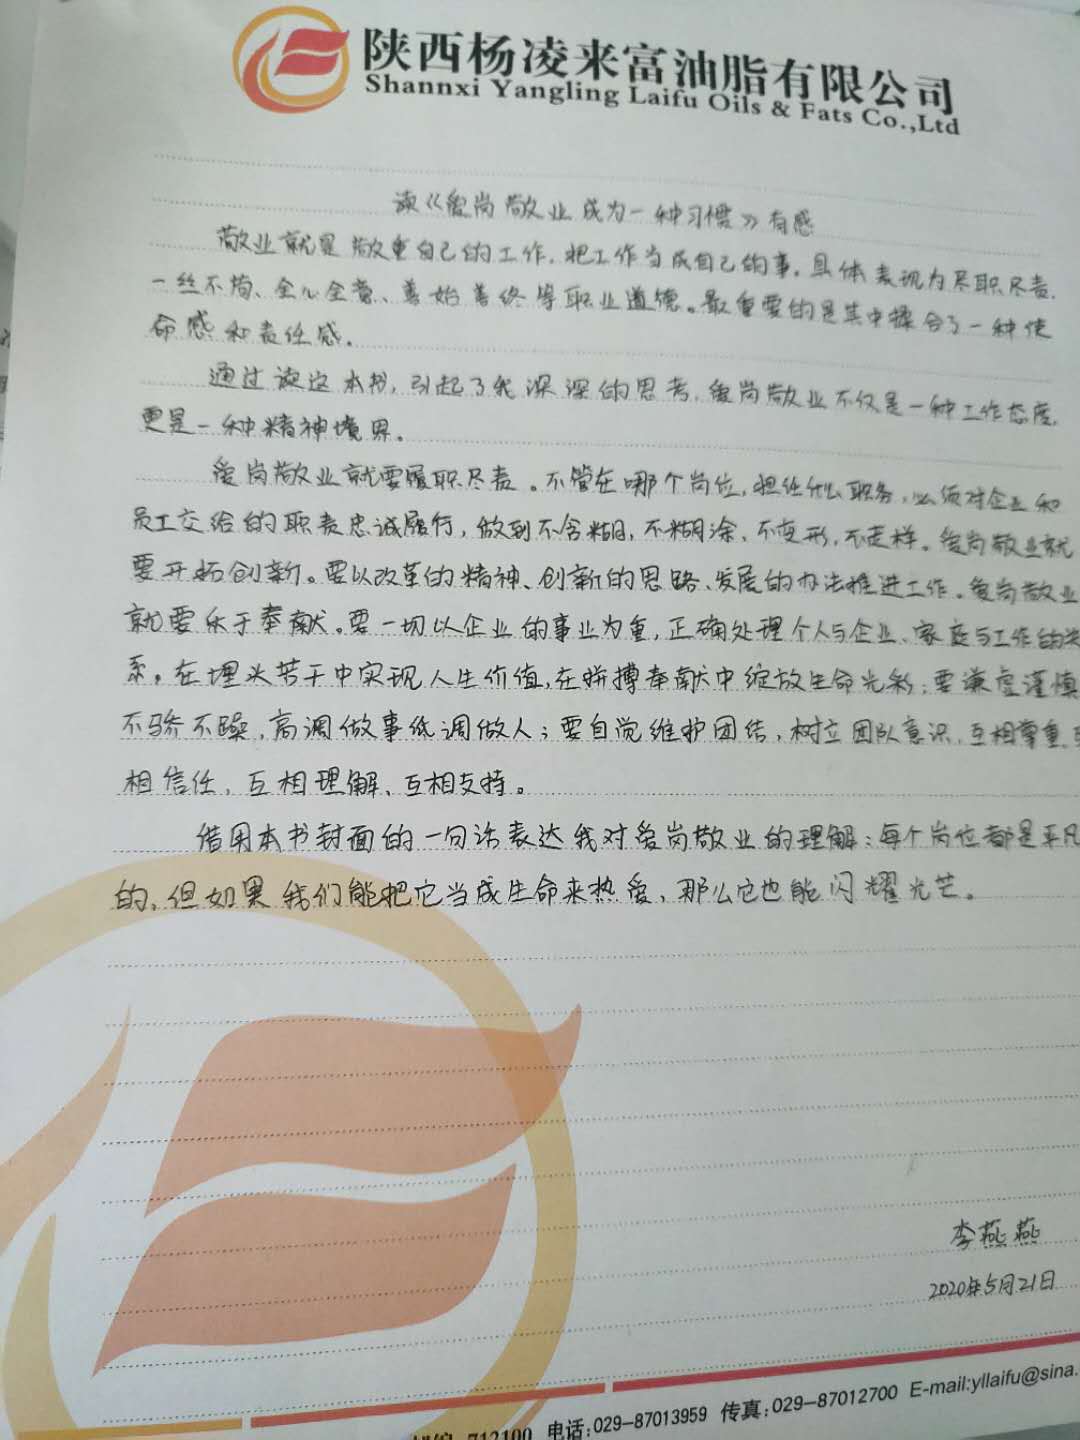 陕西杨凌来富油脂有限公司
Shannxi Yangling Laifu Oils & Fats Co.,Ltd
读《爱岗敬业成为一种习惯》有感
敬业就是敬重自己的工作，把工作当成自己的事，具体表现为尽职尽责、
一丝不苟、全心全意、善始善终等职业道德。最重要的是其中揉合了一种使
命感和责任感。
通过读这本书，引起了我深深的思考，爱岗敬业不仅是一种工作态度，
更是一种精神境界。
爱岗敬业就要履职尽责。不管在哪个岗位，担任什么职务，必须对企业和
员工交给的职责忠诚履行，做到不含糊，不糊涂，不变形，不走样。爱岗敬业就
要开拓创新。要以改革的精神、创新的思路、发展的办法推进工作。爱岗敬业
就要乐于奉献。要一切以企业的事业为重，正确处理个人与企业、家庭与工作的关
系。在埋头苦干中实现人生价值，在拼搏奉献中绽放生命光彩；要谦虚谨慎
不骄不躁，高调做事低调做人；要自觉维护团结，树立团队意识，互相尊重，互
相信任，互相理解、互相支持。
借用本书封面的一句话表达我对爱岗敬业的理解：每个岗位都是平凡
的，但如果我们能把它当成生命来热爱，那么它也能闪耀光芒。
李燕燕
2020年5月21日
邮编 712100 电话:029-87013959 传真:029-87012700 E-mail:yllaifu@sina.